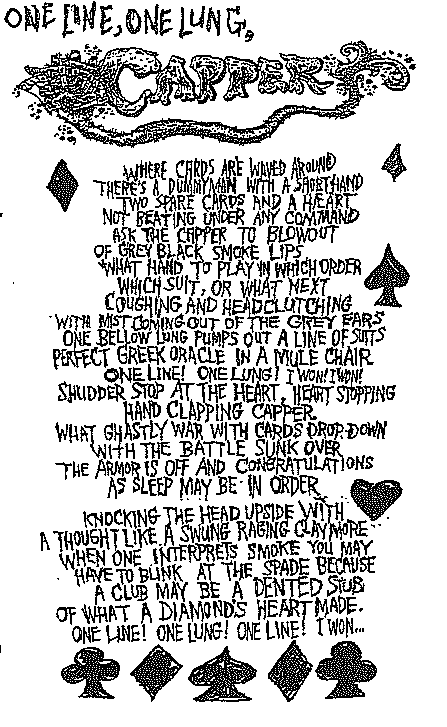 ONE LINE, ONE LUNG,
CAPPER
WHERE CARDS ARE WAVED AROUND
THERE'S A DUMMYMAN WITH A SHORTHAND
TWO SPARE CARDS AND A HEART
NOT BEATING UNDER ANY COMMAND
ASK THE CAPPER TO BLOWOUT
OF GREY BLACK SMOKE LIPS
WHAT HAND TO PLAY IN WHICH ORDER
WHICH SUIT, OR WHAT NEXT
COUGHING AND HEADCLUTCHING
WITH MIST COMING OUT OF THE GREY EARS
ONE BELLOW LUNG PUMPS OUT A LINE OF SUITS
PERFECT GREEK ORACLE IN A MULE CHAIR
ONE LINE! ONE LUNG! I WON! I WON!
SHUDDER STOP AT THE HEART, HEART STOPPING
HAND CLAPPING CAPPER
WHAT GHASTLY WAR WITH CARDS DROP-DOWN
WITH THE BATTLE SUNK OVER
THE ARMOR IS OFF AND CONGRATULATIONS
AS SLEEP MAY BE IN ORDER
KNOCKING THE HEAD UPSIDE WITH
A THOUGHT LIKE A SWUNG RAGING CLAYMORE
WHEN ONE INTERPRETS SMOKE YOU MAY
HAVE TO BLINK AT THE SPADE BECAUSE
A CLUB MAY BE A DENTED STUB
OF WHAT A DIAMOND'S HEART MADE.
ONE LINE! ONE LUNG! ONE LINE! I WON...